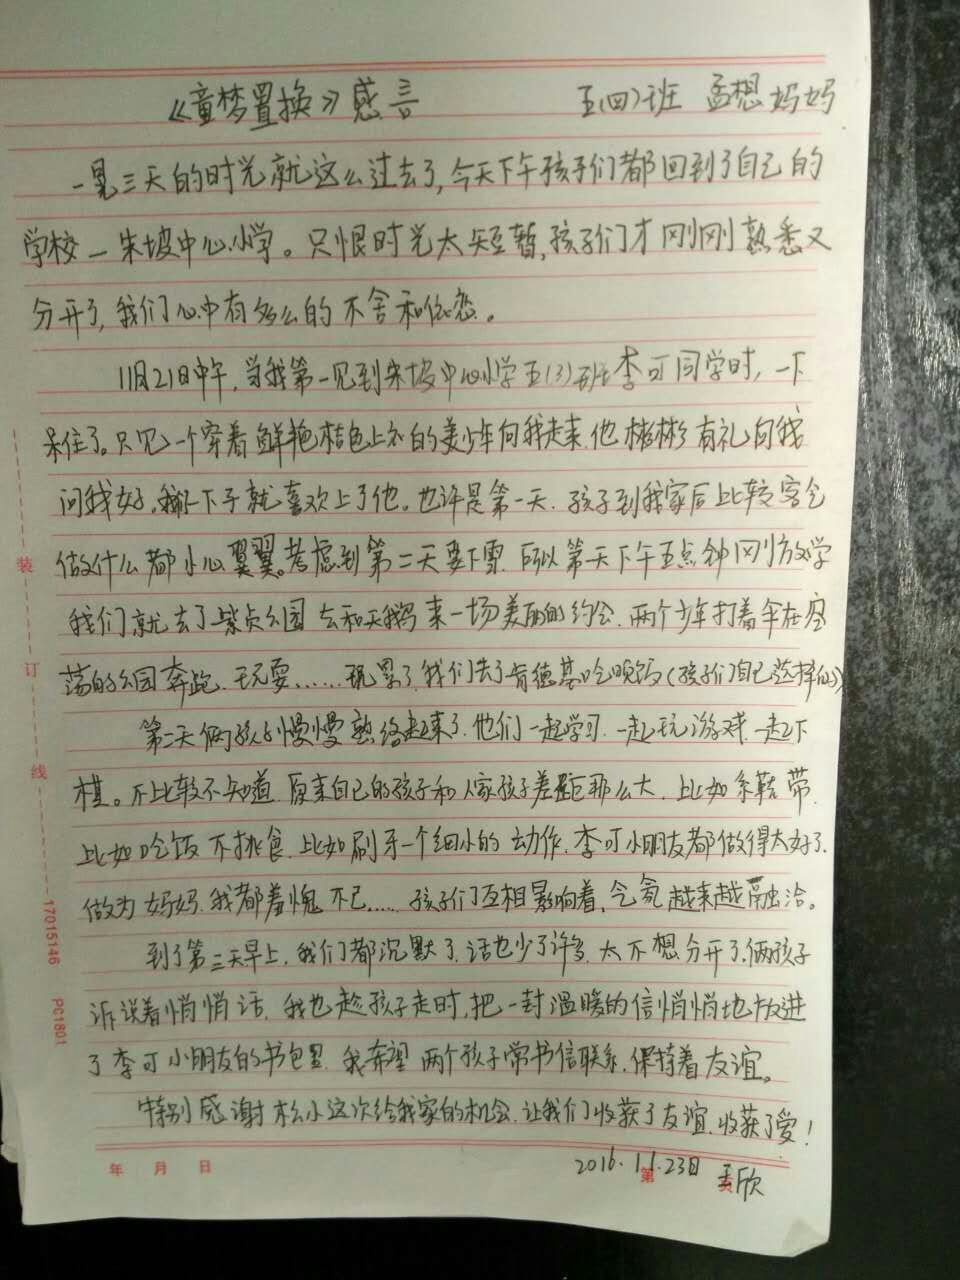 《童梦置换》感言 五(四)班 孟想妈妈
一晃三天的时光就这么过去了,今天下午孩子们都回到了自己的
学校—朱坡中心小学。只恨时光太短暂,孩子们才刚刚熟悉又
分开了,我们心中有多么的不舍和依恋。
11月21日中午,当我第一见到朱坡中心小学五(3)班李可同学时,一下
呆住了。只见一个穿着鲜艳桔色上衣的美少年向我走来.他彬彬有礼向我
问我好。我一下子就喜欢上了他。也许是第一天.孩子到我家后比较客气
做什么都小心翼翼。考虑到第二天要下雪.所以第一天下午五点钟刚放学
我们就去了 公园 去和天鹅来一场美丽的约会.两个少年打着伞在空
荡的公园奔跑.玩耍……玩累了.我们去了肯德基吃晚饭(孩子们自己选择的)
第二天俩孩子慢慢熟络起来了.他们一起学习.一起玩游戏.一起下
棋。不比较不知道.原来自己的孩子和人家孩子差距那么大.比如系鞋带.
比如吃饭不挑食.比如刷牙一个细小的动作.李可小朋友都做得太好了.
做为妈妈.我都羞愧不已……孩子们互相影响着,气氛越来越融洽。
到了第三天早上.我们都沉默了.话也少了许多.太不想分开了.俩孩子
诉说着悄悄话.我也趁孩子走时,把一封温暖的信悄悄地放进
了李可小朋友的书包里.我希望两个孩子常书信联系.保持着友谊。
特别感谢 小这次给我家的机会.让我们收获了友谊.收获了爱!
年 月 日 2016.11.23日 第 页 孟欣
装
订
线
17015146 PC1801